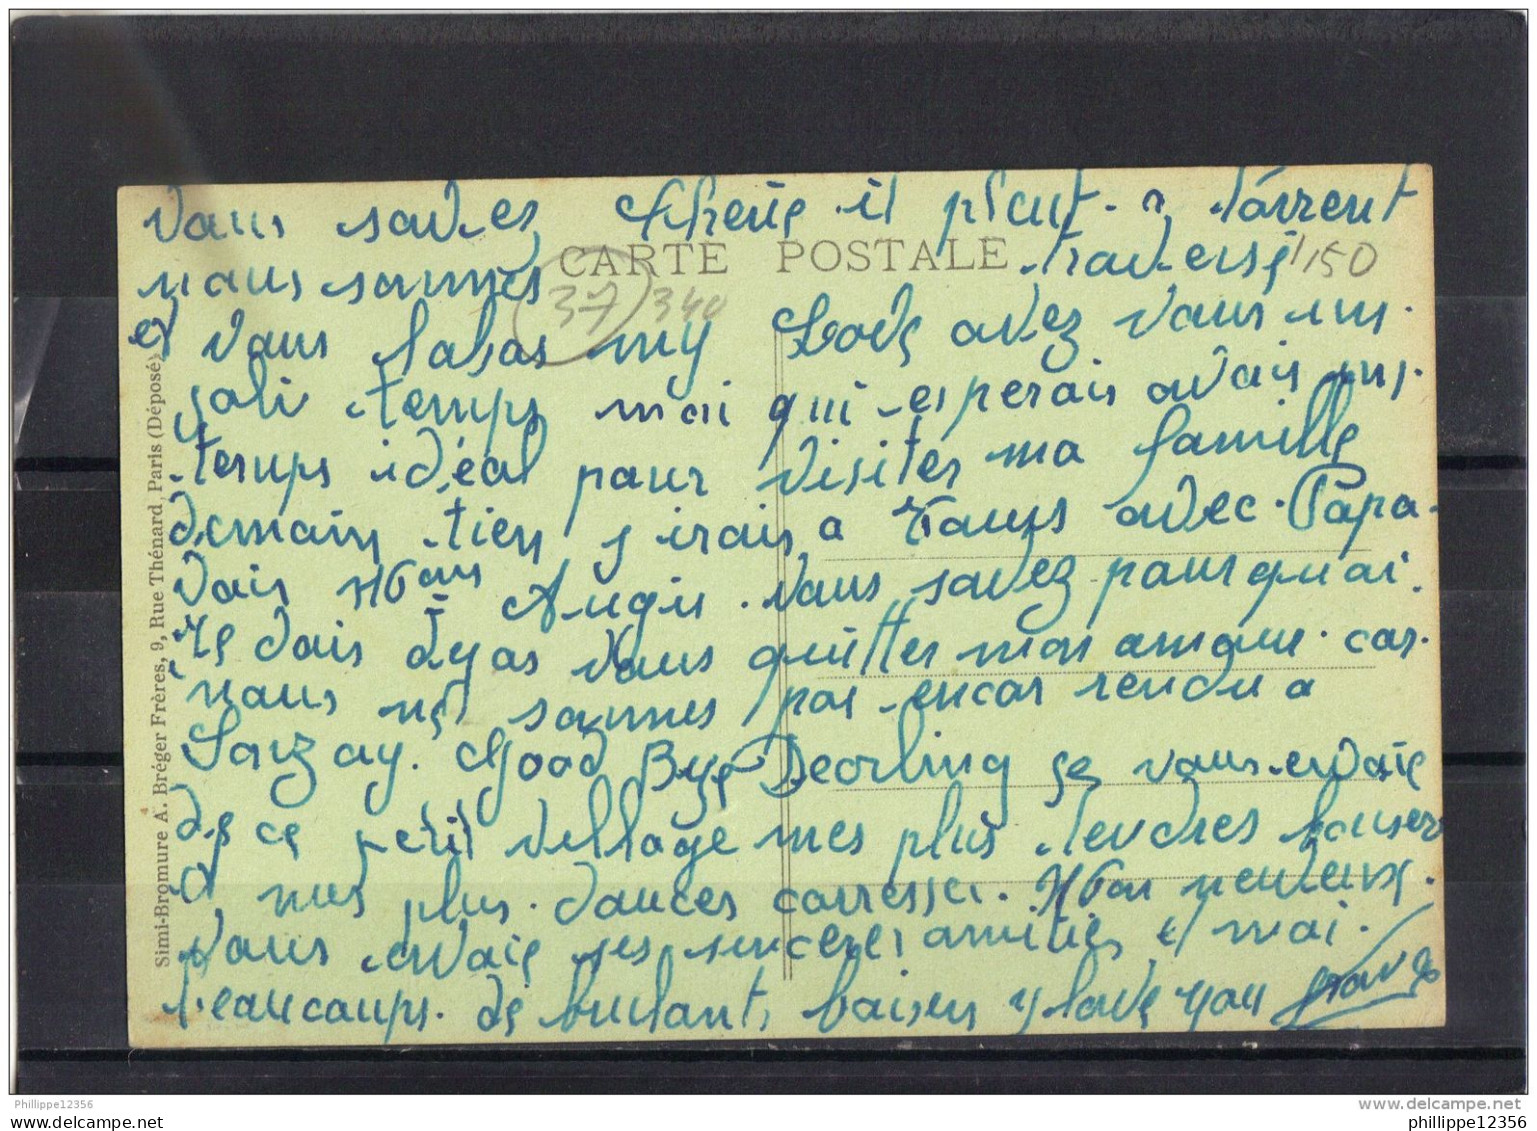 vous savez Cherie il pleut a torrent
CARTE POSTALE
nous sommes traverse 1150
37 340
et vous labas my Love avez vous un
joli temps moi qui esperais avais un
temps idéal pour visiter ma famille
demain tien j irais a Tours avec Papa
vais Mons Augis vous savez pourquoi
Je dois vous quitter mon amour car
nous ne sommes pas encor rendu a
Sarzay. Good Bye Dearling je vous envoie
de ce petit village mes plus tendres baiser
et mes plus douces carresses. Mon neuveux
vous envoie ses sinceres amities et moi
beaucoups de brulants baisers y love you
Simi-Bromure A. Bréger Frères, 9, Rue Thénard, Paris (Déposé)
Philippe12356
www.delcampe.net
philippe12356